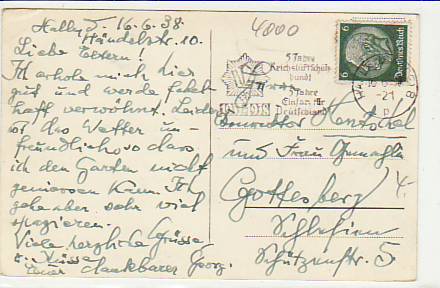 Halle S. 16.6.38
Händelstr. 10.
Liebe Eltern!
Ich erhole mich hier
gut und werde
haft verwöhnt. Leider
ist das Wetter un-
freundlich so dass
ich den Garten nicht
geniessen kann. Ich
gehe aber sehr viel
spazieren.
Viele herzliche Grüsse
u. Küsse
Euer dankbarer Georg.
4000
5 Jahre
Reichsluftschutz-
bund
5 Jahre
Einsatz für
Deutschland
1933 1938
6 6
Deutsches Reich
HALLE
und Frau Gemahlin
Gottesberg
Schlesien
Schützenstr. 5